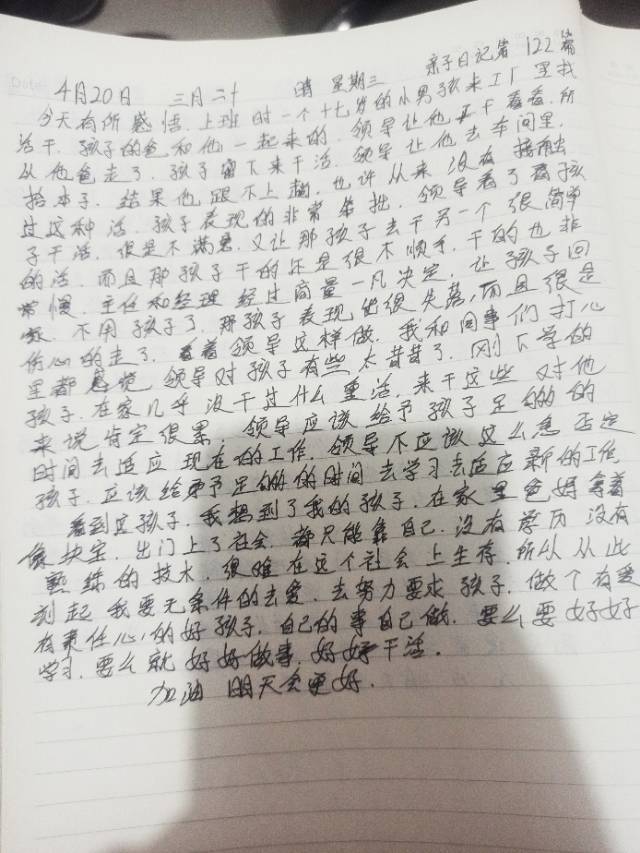 亲子日记第122篇
4月20日 三月二十 晴 星期三
今天有所感悟.上班时一个十七岁的小男孩来工厂里找
活干.孩子的爸和他一起来的.领导让他干干看看.所
从他爸走了.孩子留下来干活.领导让他去车间里.
拾本子.结果他跟不上趟.也许从来没有接触
过这种活.孩子表现的非常笨拙.领导看了看孩
子干活.很是不满意.又让那孩子去干另一个很简单
的活.而且那孩子干的还是很不顺手.干的也非
常慢.主任和经理经过商量一凡决定.让孩子回
不用孩子了.那孩子表现出很失落,而且很是
伤心的走了.看着领导这样做.我和同事们打心
里都感觉领导对孩子有些太苛苛了.刚下学的
孩子.在家几乎没干过什么重活.来干这些对他
来说肯定很累,领导应该给予孩子足够的
时间去适应现在的工作.领导不应该这么急否定
孩子.应该给予足够的时间去学习去适应新的工作.
看到这孩子.我想到了我的孩子.在家里爸妈拿着
像块宝.出门上了社会.都只能靠自己.没有学历没有
熟练的技术.很难在这个社会上生存.所从从此
刻起我要无条件的去爱.去努力要求孩子.做个有爱
有责任心的好孩子.自己的事自己做.要么要好好
学习.要么就好好做事.好好干活.
加油 明天会更好.